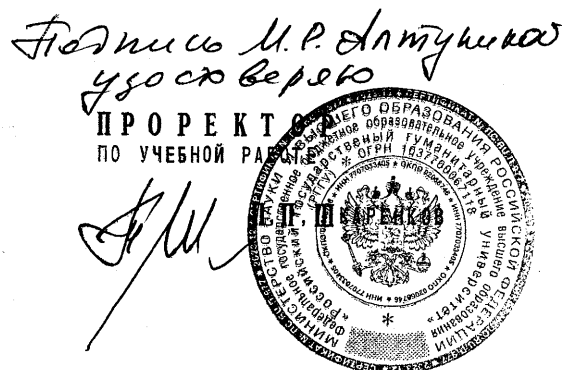 Подпись М.Р. Алтуниной
удостоверяю
ПРОРЕКТОР
ПО УЧЕБНОЙ РАБОТЕ
П.П. ШКАРЕНКОВ
МИНИСТЕРСТВО НАУКИ И ВЫСШЕГО ОБРАЗОВАНИЯ РОССИЙСКОЙ ФЕДЕРАЦИИ
Федеральное государственное бюджетное образовательное учреждение высшего образования
«Российский государственный гуманитарный университет»
(РГГУ) * ОГРН 1037700067118
* ИНН 7707033405 * ОКПО 02068746